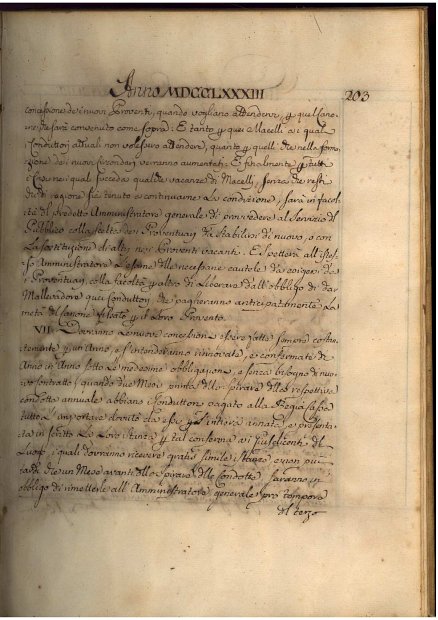 Anno MDCCLXXXIII 203
concessione de nuovi Proventi, quando vogliano attendervi, p quel Cano-
ne, che sarà convenuto come sopra: E tanto p quei Macelli ai quali
i Conduttori attuali non volessero attendere, quanto p quelli che nella
zione dei nuovi verranno aumentati. E finalmente p tutti
i Casi nei quali succeda qualche vacanza di Macelli, senza che resti
chi di ragione sia tenuto a continuarne la conduzione, sarà in facol-
tà del predetto Amministratore generale di provvedere al Servizio del
Pubblico colla scelta dei Proventuarj da stabilirsi di nuovo, o con
la sostituzione di altri nei Proventi vacanti. E spetterà all'istes-
so Amministratore l'esame delle necessarie cautele da esigersi da
i Proventuarj colla facoltà p altro di liberare dall'obbligo di dar
Mallevadore quei Conduttori che pagheranno anticipatamente la
metà del Canone fissato p il loro Provento.
VII. Dovranno le nuove concessioni essere fatte sempre
temente p un Anno, e s'intenderanno rinnovate, e confermate di
Anno in Anno sotto le medesime obbligazioni, e senza bisogno di nuo-
vo Contratto, quando due Mesi avanti allo spirare della respettiva
condotta annuale abbiano i Conduttori pagato alla Regia Cassa
tutto l'importare dovuto da essi p l'intiera annata, e presenta-
ta in scritto la loro p tal conferma ai Giusdicenti del
Luogo, i quali dovranno ricevere gratis simili e non più
tardi di un Mese avanti allo spirare delle Condotte saranno in
obbligo di rimetterle all'Amministratore generale pro tempore
del terzo